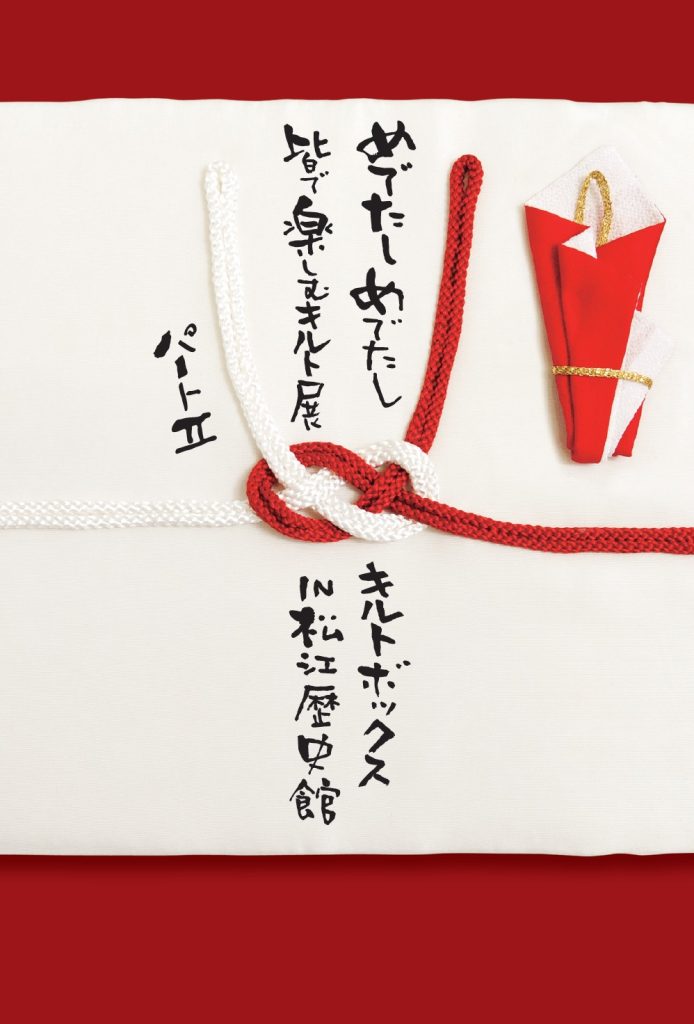 めでたしめでたし
皆で楽しむキルト展
パートⅡ
キルトボックス
IN松江歴史館